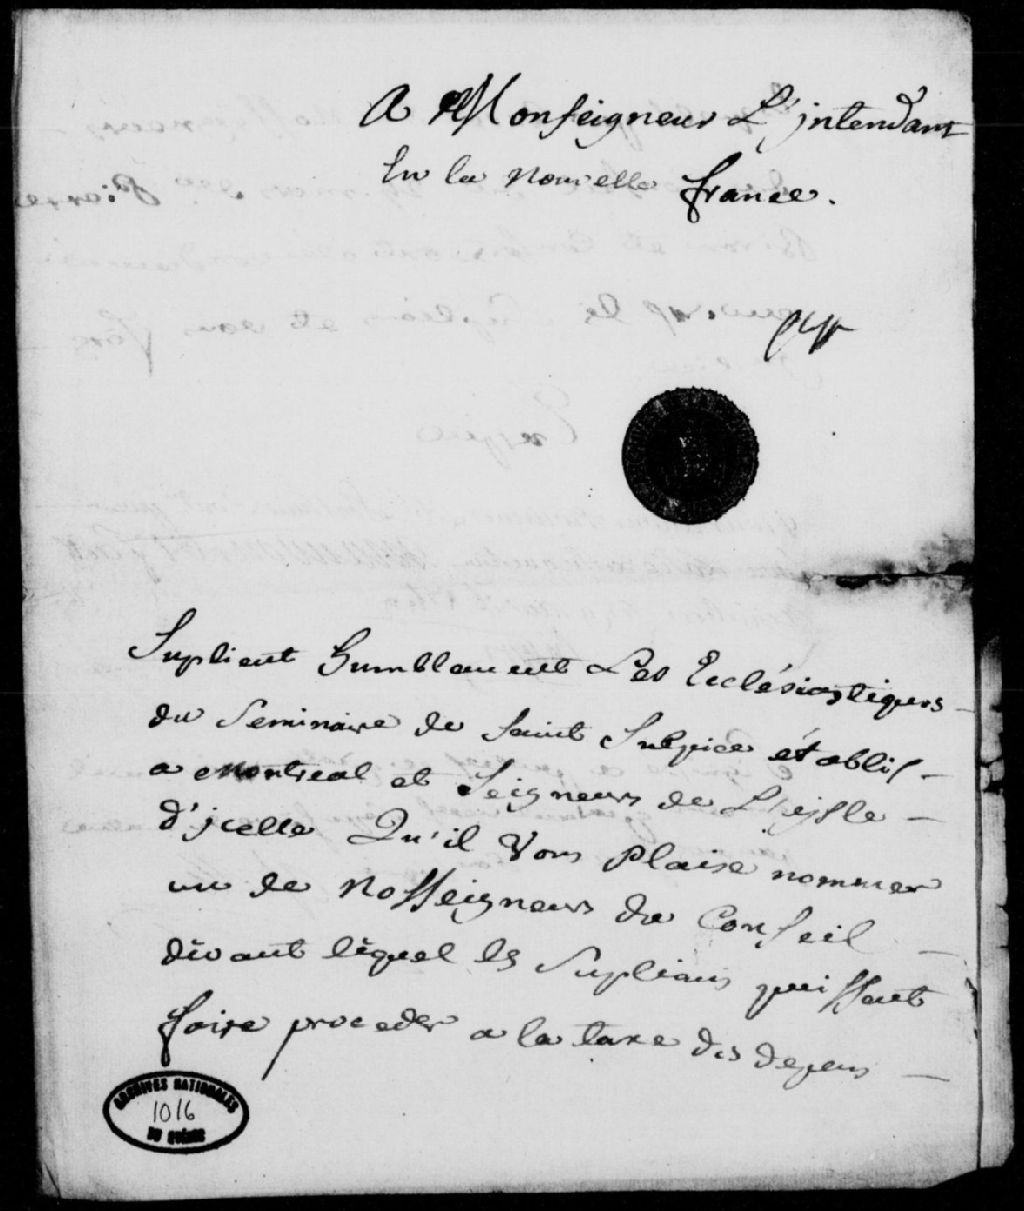 A Monseigneur L'jntendant
En la nouvelle france.
Suplient humblement Les Ecclésiastiques
du Seminaire de Saint Sulpice établis
a Montreal et Seigneurs de L'jsle
d'jcelle Qu'il Vous Plaise nommer
un de Nosseigneurs du Conseil
devant lequel les Suplians puissent
faire proceder a la taxe des depens
ARCHIVES NATIONALES
1016
DU QUÉBEC